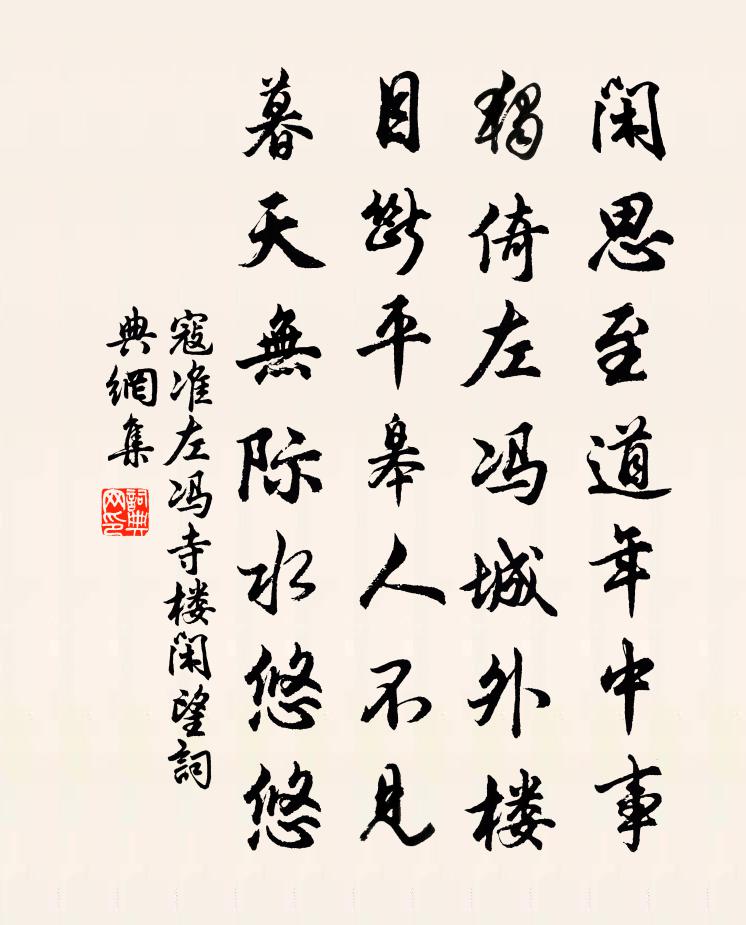 闲思至道年中事
獨倚左冯城外楼
目斷平皋人不見
暮天無际水悠悠
寇准左冯寺楼闲望詞
典網集
詞典
网印